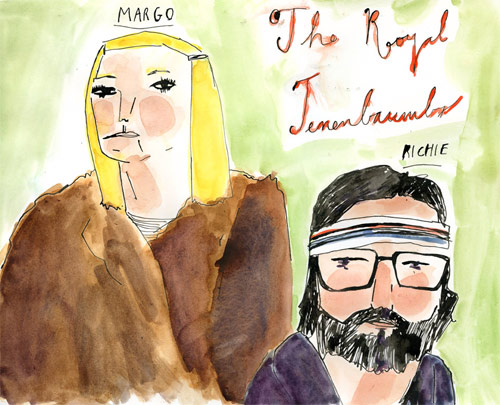 MARGO
The Royal
Tenenbaums
RICHIE